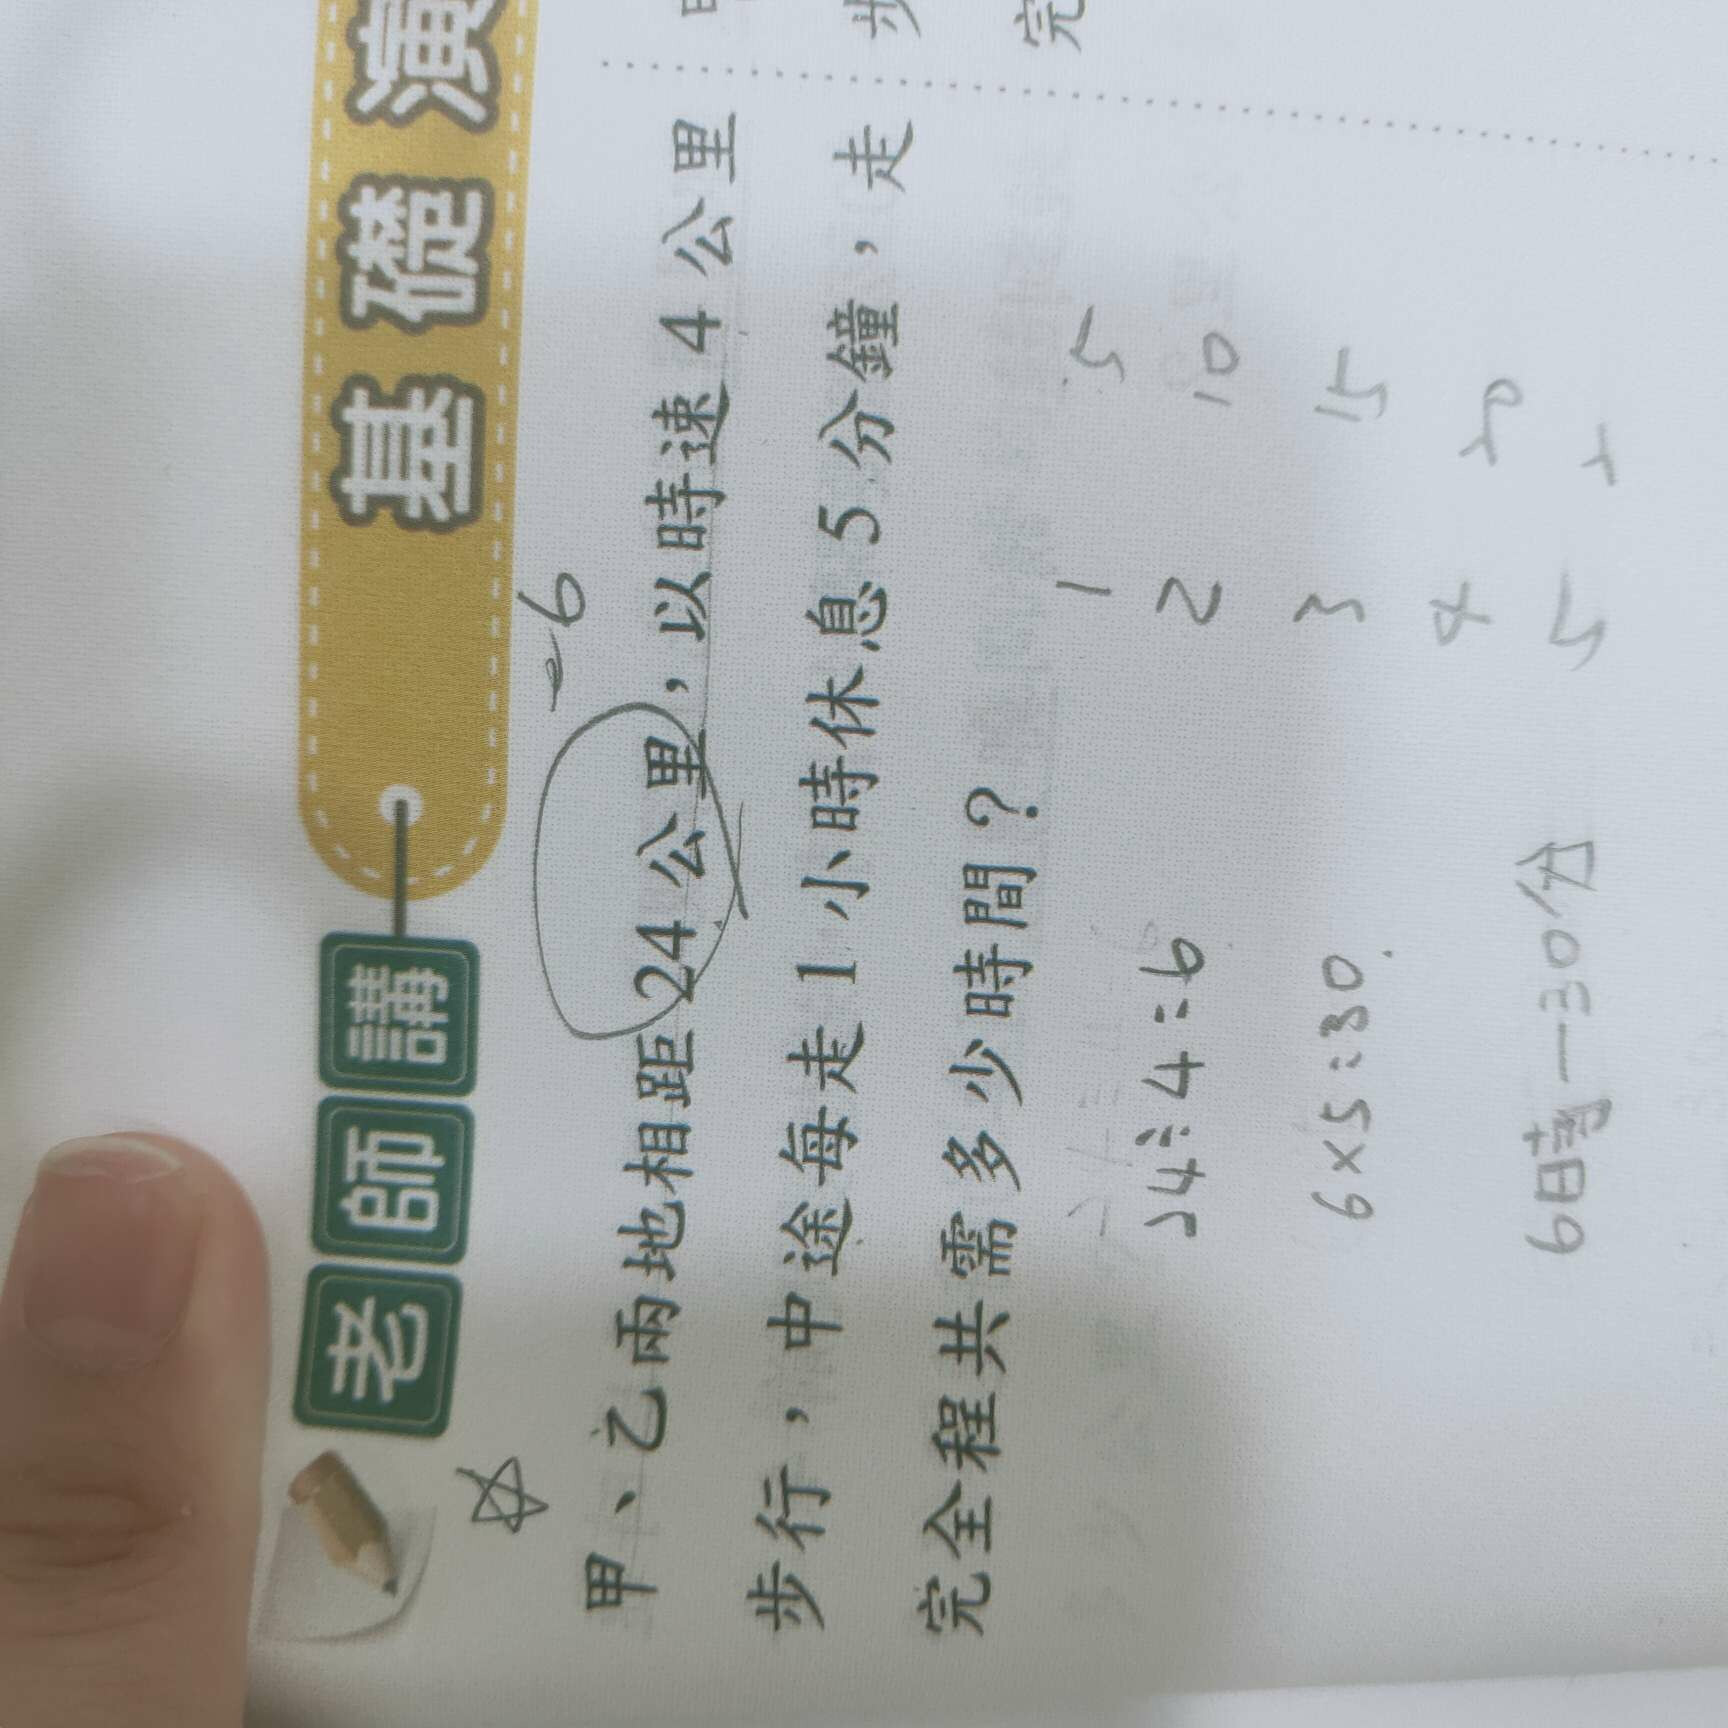 老師講 基礎演
甲、乙兩地相距 24 公里,以時速 4 公里
步行,中途每走 1 小時休息 5 分鐘,走
完全程共需多少時間?
24÷4=6
6×5=30.
6時一30份
1 5
2 10
3 15
4
5
步
完